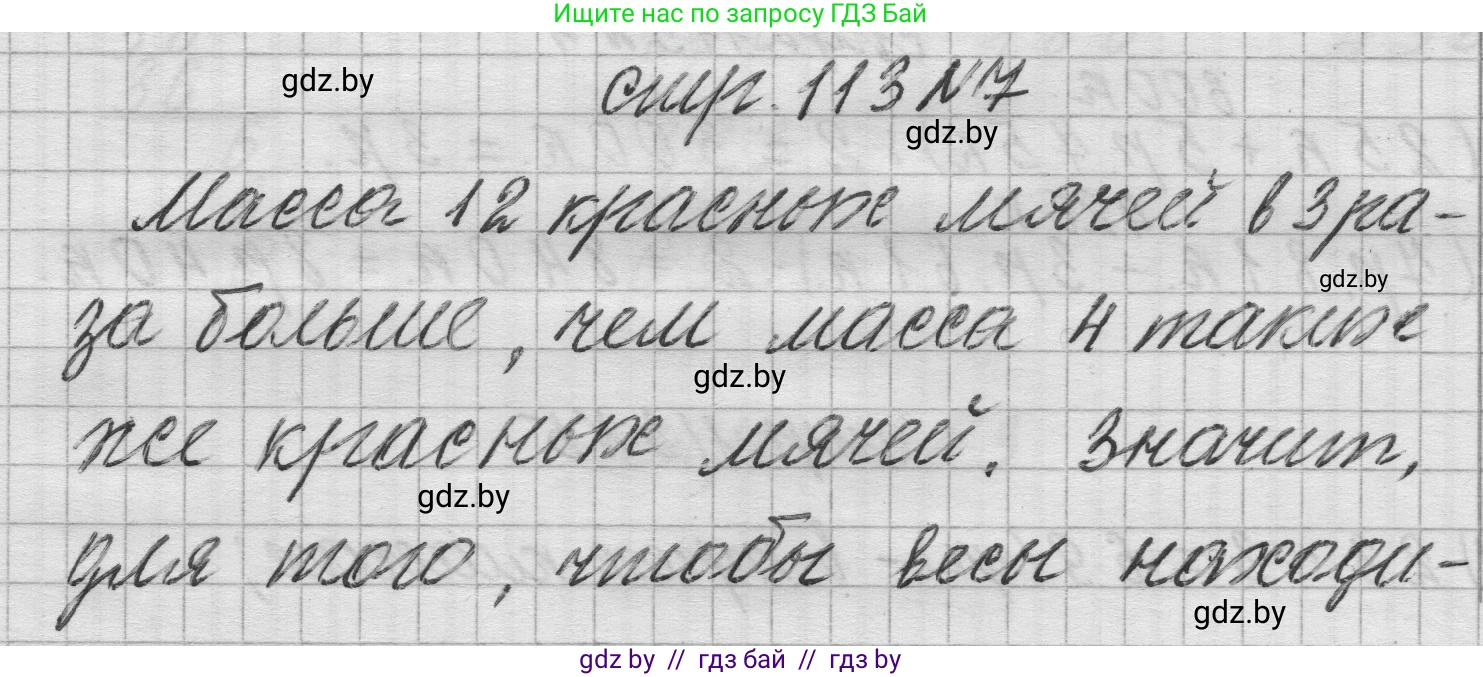 Ищите нас по запросу ГДЗ Бай
gdz.by
стр. 113 №7
gdz.by
Масса 12 красных мячей в 3 ра-
gdz.by
за больше, чем масса 4 таких
gdz.by
же красных мячей. Значит,
gdz.by
для того, чтобы весы находи-
gdz.by
gdz by // гдз бай // гдз by